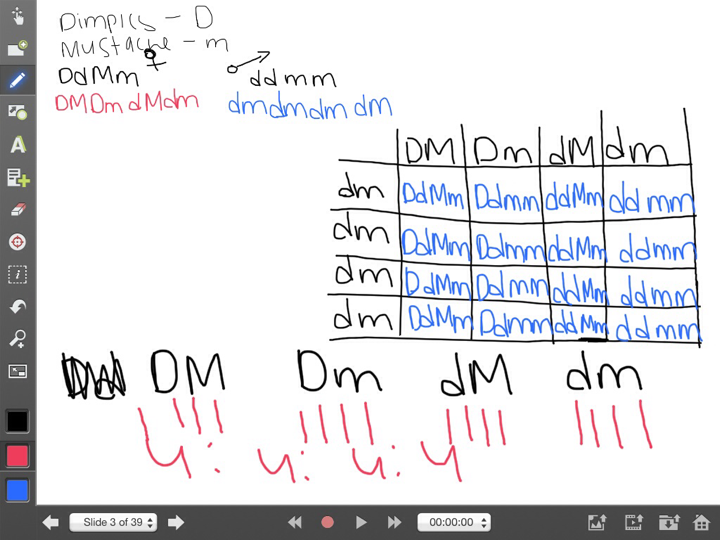 Dimples - D
Mustache - m
DdMm ♀ ddmm
DM Dm dM dm dm dm dm dm
DM Dm dM dm
dm DdMm Ddmm ddMm ddmm
dm DdMm Ddmm ddMm ddmm
dm DdMm Ddmm ddMm ddmm
dm DdMm Ddmm ddMm ddmm
DM Dm dM dm
4 : 4 : 4 : 4
Slide 3 of 39
00:00:00